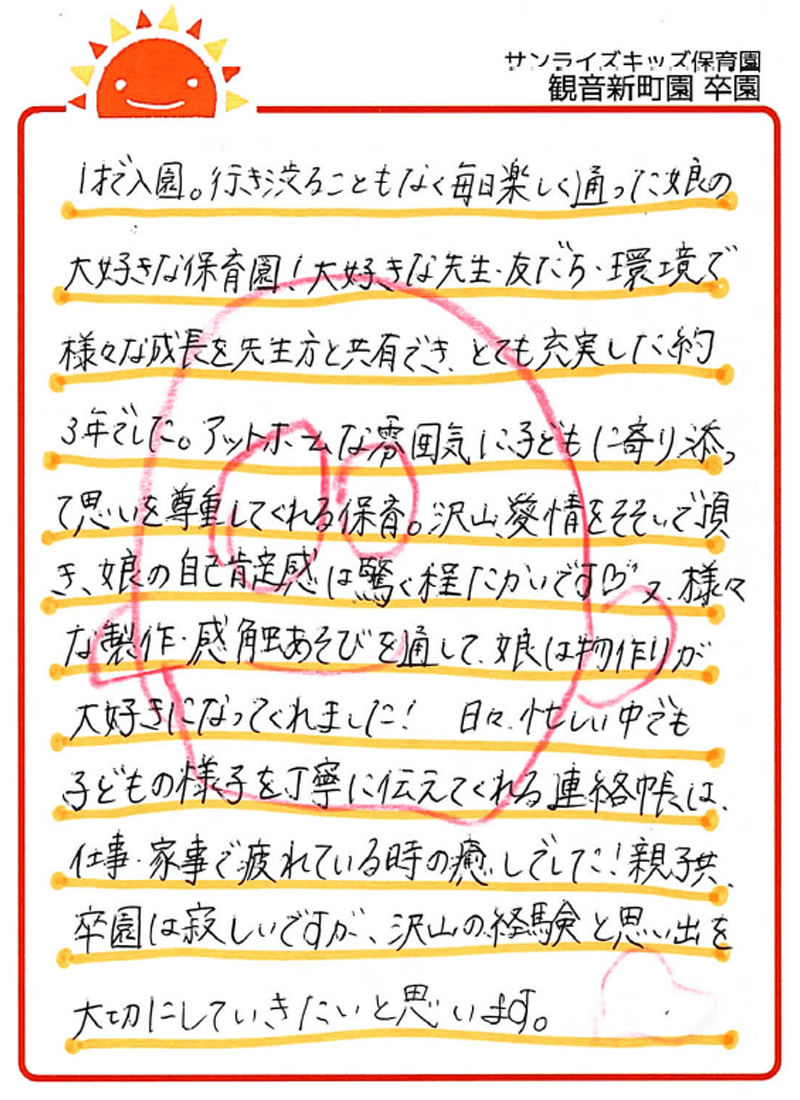 サンライズキッズ保育園
観音新町園 卒園
1才で入園。行き渋ることもなく毎日楽しく通った娘の
大好きな保育園！大好きな先生・友だち・環境で
様々な成長を先生方と共有でき、とても充実した約
3年でした。アットホームな雰囲気に子どもに寄り添っ
て思いを尊重してくれる保育。沢山、愛情をそそいで頂
き、娘の自己肯定感は驚く程たかいです♡ 又、様々
な製作・感触あそびを通して、娘は物作りが
大好きになってくれました！ 日々、忙しい中でも
子どもの様子を丁寧に伝えてくれる連絡帳は、
仕事・家事で疲れている時の癒しでした！親子共、
卒園は寂しいですが、沢山の経験と思い出を
大切にしていきたいと思います。